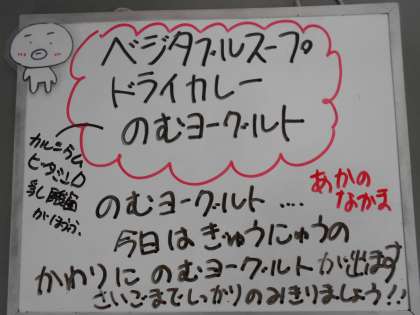 ベジタブルスープ
ドライカレー
のむヨーグルト
カルシウム
ビタミンD
乳酸菌
がほうふ、
のむヨーグルト ....
あかの
なかま
今日はぎゅうにゅうの
かわりに のむヨーグルトが出ます
さいごまでしっかりのみきりましょう!!